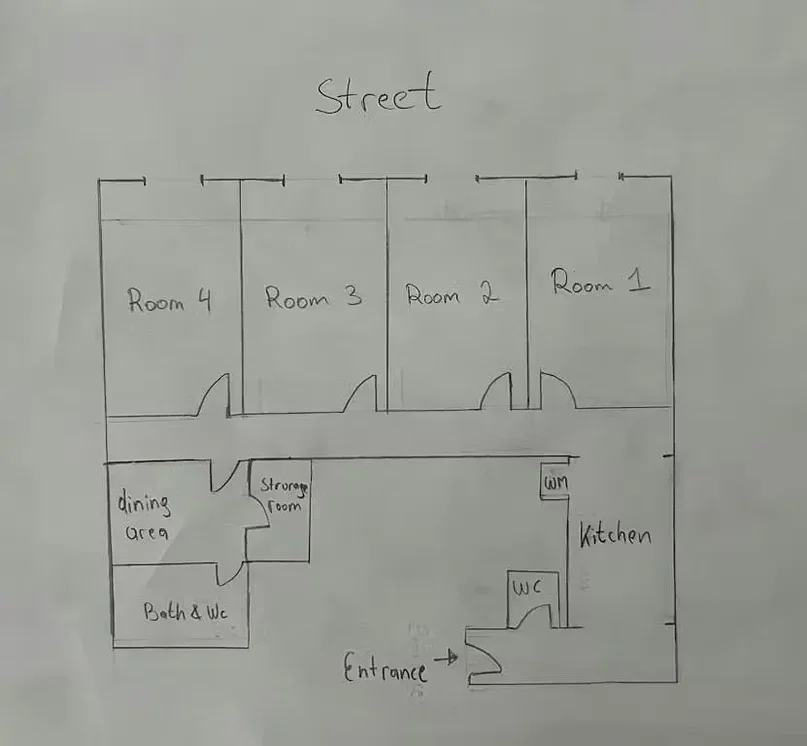 Street
Room 4
Room 3
Room 2
Room 1
dining
area
Strorage
room
WM
Kitchen
WC
Bath & Wc
Entrance